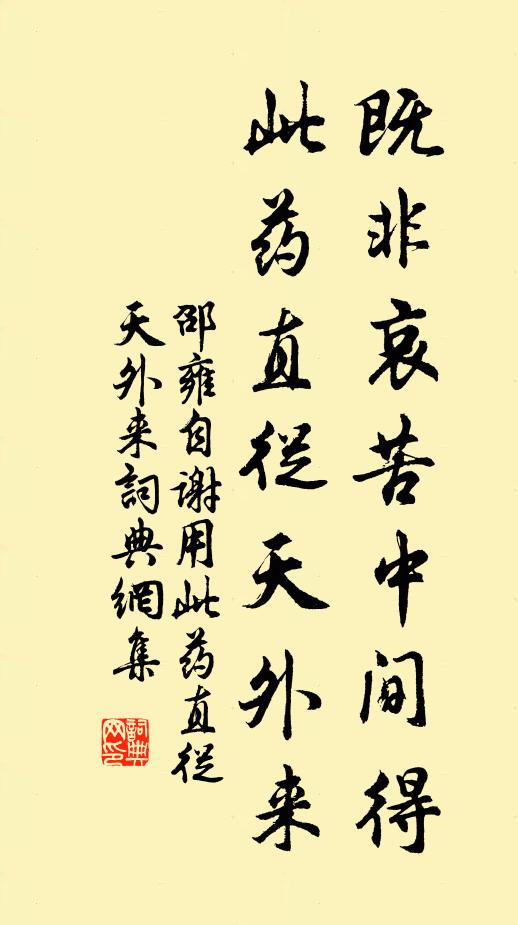 既非哀苦中间得
此药直從天外来
邵雍自谢用此药直從
天外来詞典網集
詞典
网印